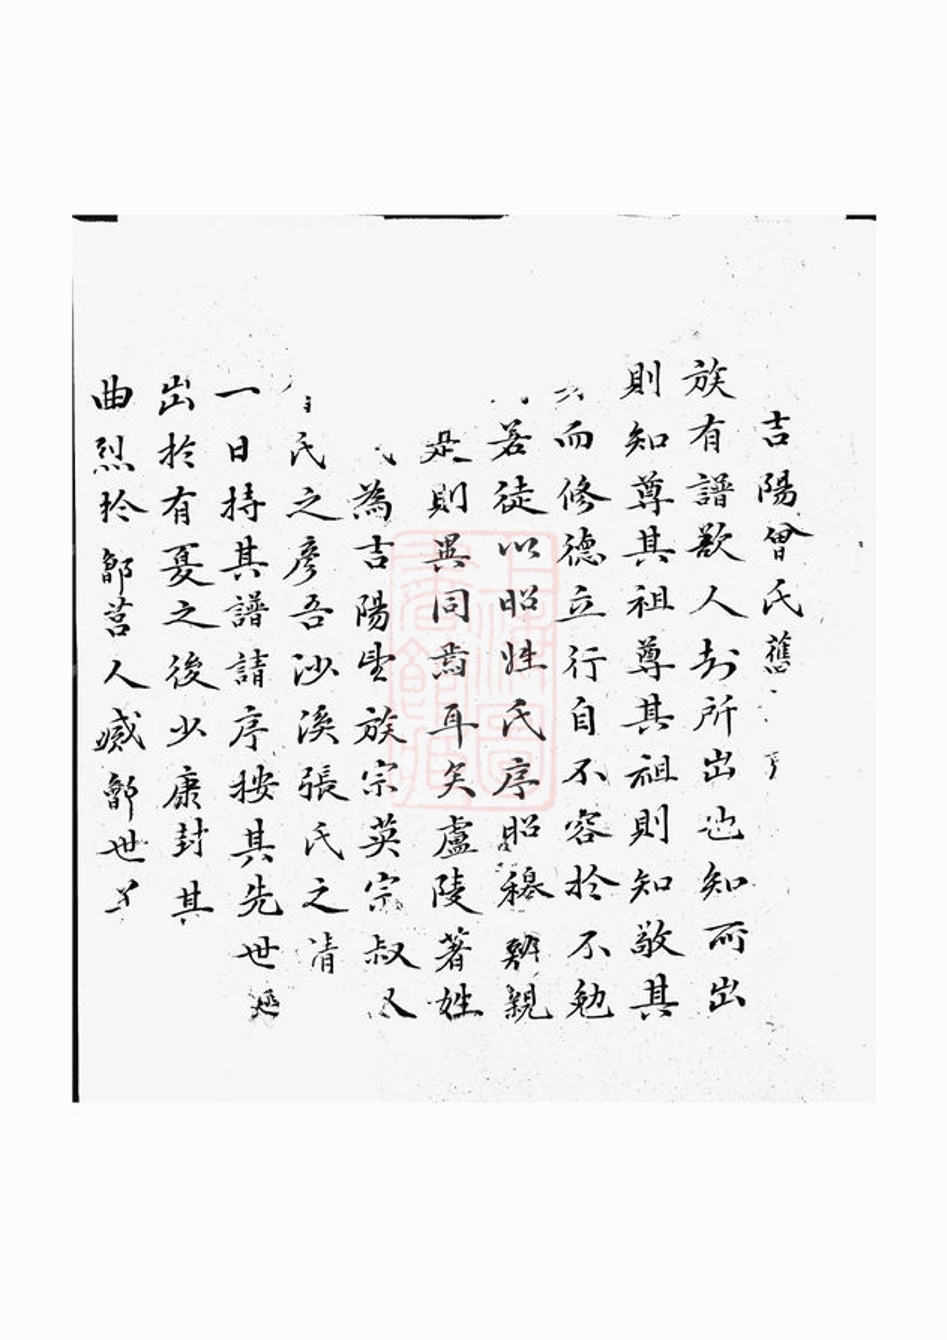 吉陽曾氏舊
族有譜欲人知所出也知所出
則知尊其祖尊其祖則知敬其
而修德立行自不容於不勉
若徒以昭姓氏序昭穆辨親
是則異同焉耳矣盧陵著姓
為吉陽望族宗英宗叔又
氏之彥吾沙溪張氏之清
一日持其譜請序按其先世
出於有夏之後少康封其
曲烈於鄫莒人滅鄫世子